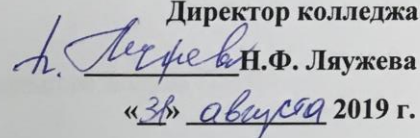 Директор колледжа
Н.Ф. Ляужева
«31» августа 2019 г.